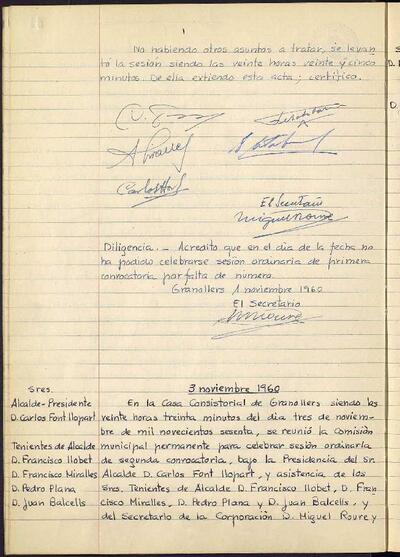 No habiendo otros asuntos a tratar, se levan
tó la sesión siendo las veinte horas veinte y cinco
minutos. De ella extiendo esta acta; certifico.
Carlos Font
El Secretario
Miguel Roure
Diligencia. - Acredito que en el dia de la fecha no
ha podido celebrarse sesión ordinaria de primera
convocatoria por falta de número.
Granollers 1 noviembre 1960
El Secretario
Sres.
Alcalde-Presidente
D. Carlos Font Llopart
Tenientes de Alcalde
D. Francisco Llobet
D. Francisco Miralles
D. Pedro Plana
D. Juan Balcells
3 noviembre 1960
En la Casa Consistorial de Granollers siendo las
veinte horas treinta minutos del dia tres de noviem-
bre de mil novecientos sesenta, se reunió la Comisión
municipal permanente para celebrar sesión ordinaria
de segunda convocatoria, bajo la Presidencia del Sr.
Alcalde D. Carlos Font Llopart, y asistencia de los
Sres. Tenientes de Alcalde D. Francisco Llobet, D. Fran
cisco Miralles, D. Pedro Plana y D. Juan Balcells, y
del Secretario de la Corporación D. Miguel Roure y